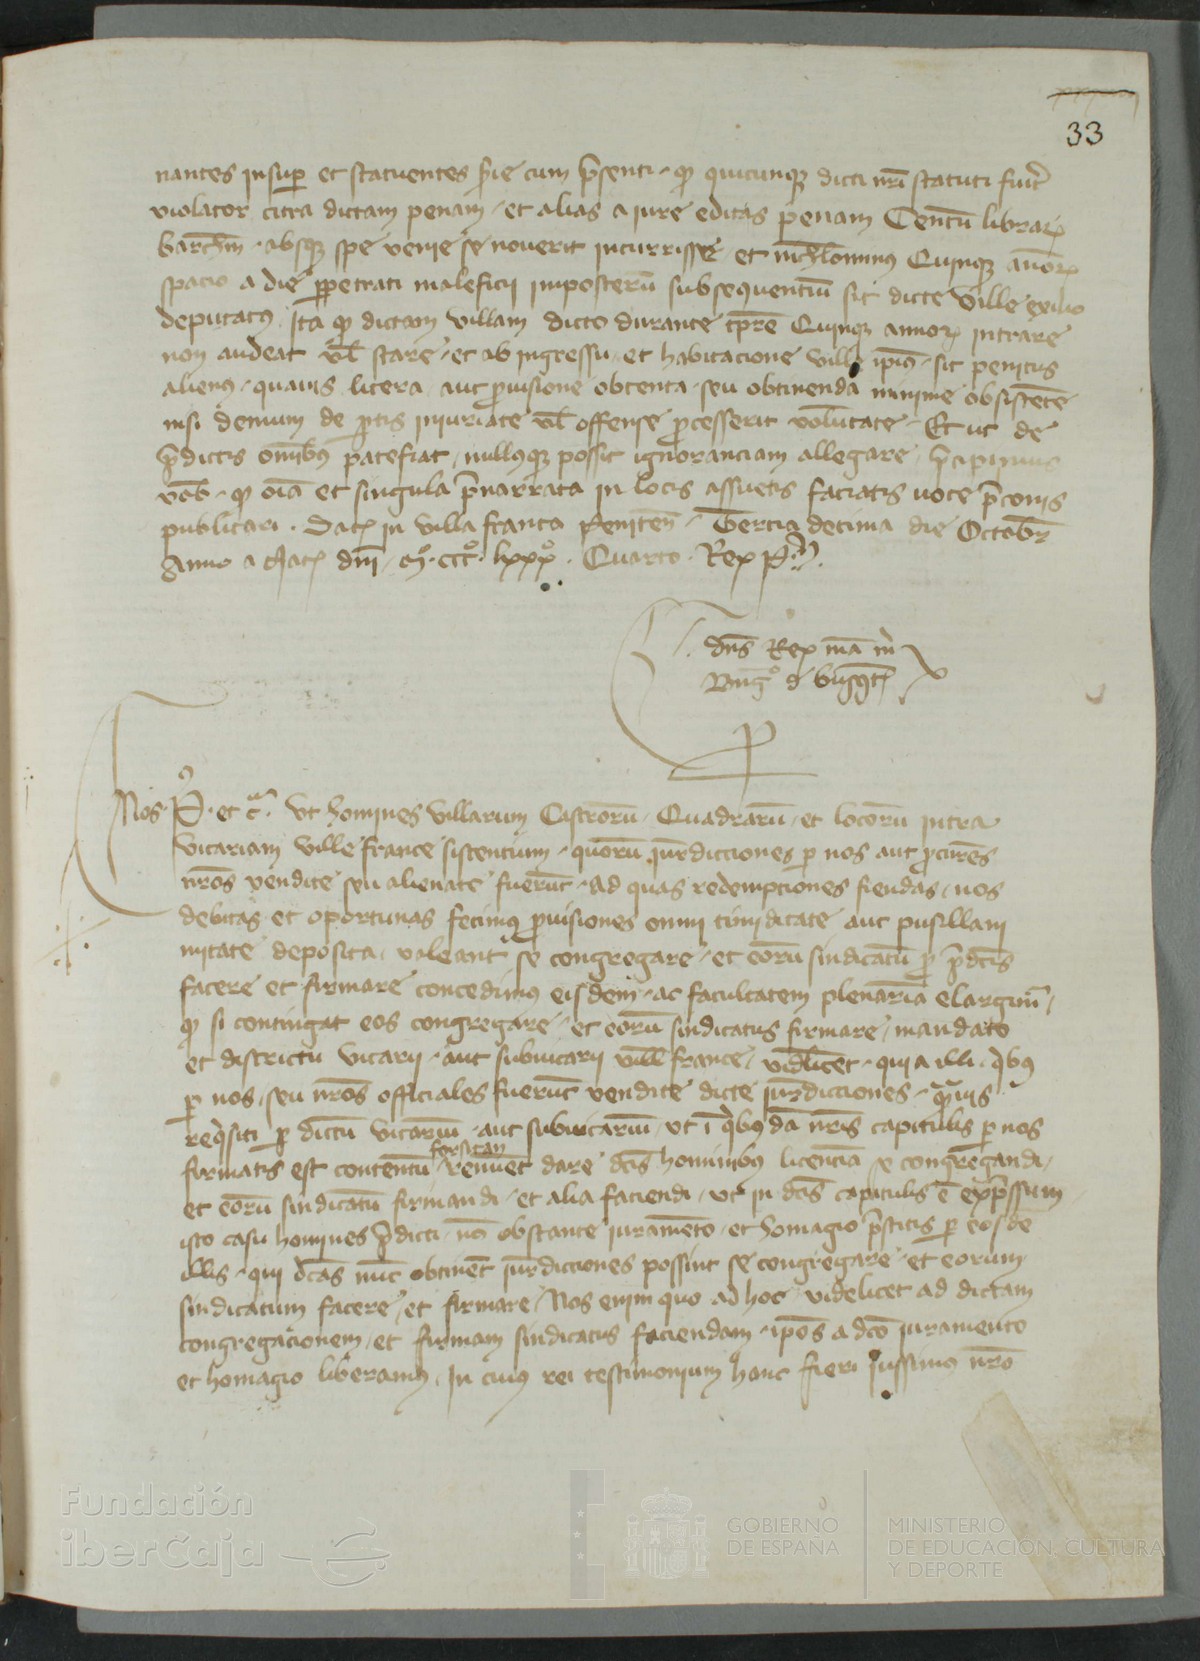 33
nantes insuꝑ et statuentes serie cum p̄senti · qđ quicunqꝫ dicti nr̄i statuti fuit
violator citra dictam penam · et alias a iure editas penam Centū libraꝝ
barch̄m · absqꝫ spe venie se noverit incurrisse et nichilominus Quinqꝫ annoꝝ
spacio a die ꝑpetrati maleficij imposterū subsequentiū sit dicte ville exilio
deputatꝰ Ita qđ dictam villam dicto durante tp̄re Quinqꝫ annoꝝ intrare
non audeat vl̄ stare · et ab ingressu et habitacione ville ip̄iꝰ · sit penitus
alienꝰ · quavis litera aut p̄visione obtenta seu obtinenda minime obsistente
nisi demum de ꝑtis iniuriate vl̄ offense p̄cesserit volūtate · Et ut de
p̄dictis om̄ibꝰ patefiat nullusqꝫ possit ignoranciam allegare p̄cipimus
vob̄ · qđ oīa et singula p̄narrata in locis assuetis faciatis voce p̄conis
publicari · Dat̄ in villa francha Peniten̄ · Tercia decima die Octobr̄
Anno a Nat̄ dn̄i · Mº · CCCº · lxxxº · Quarto · Rex P ·
dn̄s Rex
Nos P · et c̄ · Ut homines villarum Castrorū · Quadrarū · et locorū intra
vicariam ville france sistentium · quorū iurdicciones ꝑ nos aut ꝓcures
nr̄os vendite seu alienate fuerūt · ad quas redempciones fiendas nos
debitas et oportunas fecimꝰ p̄visiones omni timiditate aut pusillani
mitate deposita valeant se congregare · et eorū sindicatū ꝑ p̄dcīs
facere et firmare concedimꝰ eisdem · ac facultatem plenariā elargimꝰ
qđ si contingat eos congregare · et eorū sindicatus firmare mandato
et districtu vicarij · aut subvicarij ville france videlicet · quia illi qibꝰ
ꝑ nos seu nr̄os officiales fuerūt vendite dicte iurdicciones · quavis
reqisiti ꝑ dictū vicariū · aut subvicariū ut ī qibꝰdā nr̄is capitulis ꝑ nos
forsitan
firmatis est contentū renuēt dare dcīs hominibꝰ licenciā se congregandi
et eorū sindicatū firmandi · et alia faciendi ut in dcīs capitulis ē exp̄ssum
isto casu homines p̄dicti nō obstante iuramēto et homagio p̄stitis ꝑ eos de
illis · qui dcās nūc obtinēt iurdicciones possint se congregare · et eorum
sindicatum facere et firmare Nos enim quo ad hoc videlicet ad dictam
congregacionem et firmam sindicatus faciendam · ip̄os a dcō iuramento
et homagio liberamꝰ In cuiꝰ rei testimonium hanc fieri iussimus nr̄o
Fundación
iberCaja
GOBIERNO
DE ESPAÑA
MINISTERIO
DE EDUCACIÓN, CULTURA
Y DEPORTE